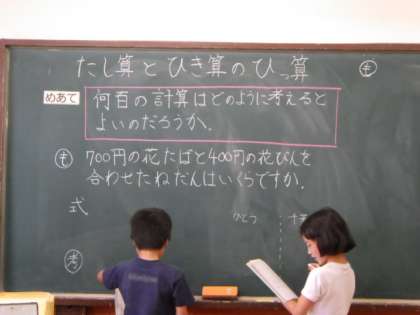 たし算とひき算のひっ算
も
めあて
何百の計算はどのように考えると
よいのだろうか。
も 700円の花たばと400円の花びんを
合わせたねだんはいくらですか。
式
ひとつ
考